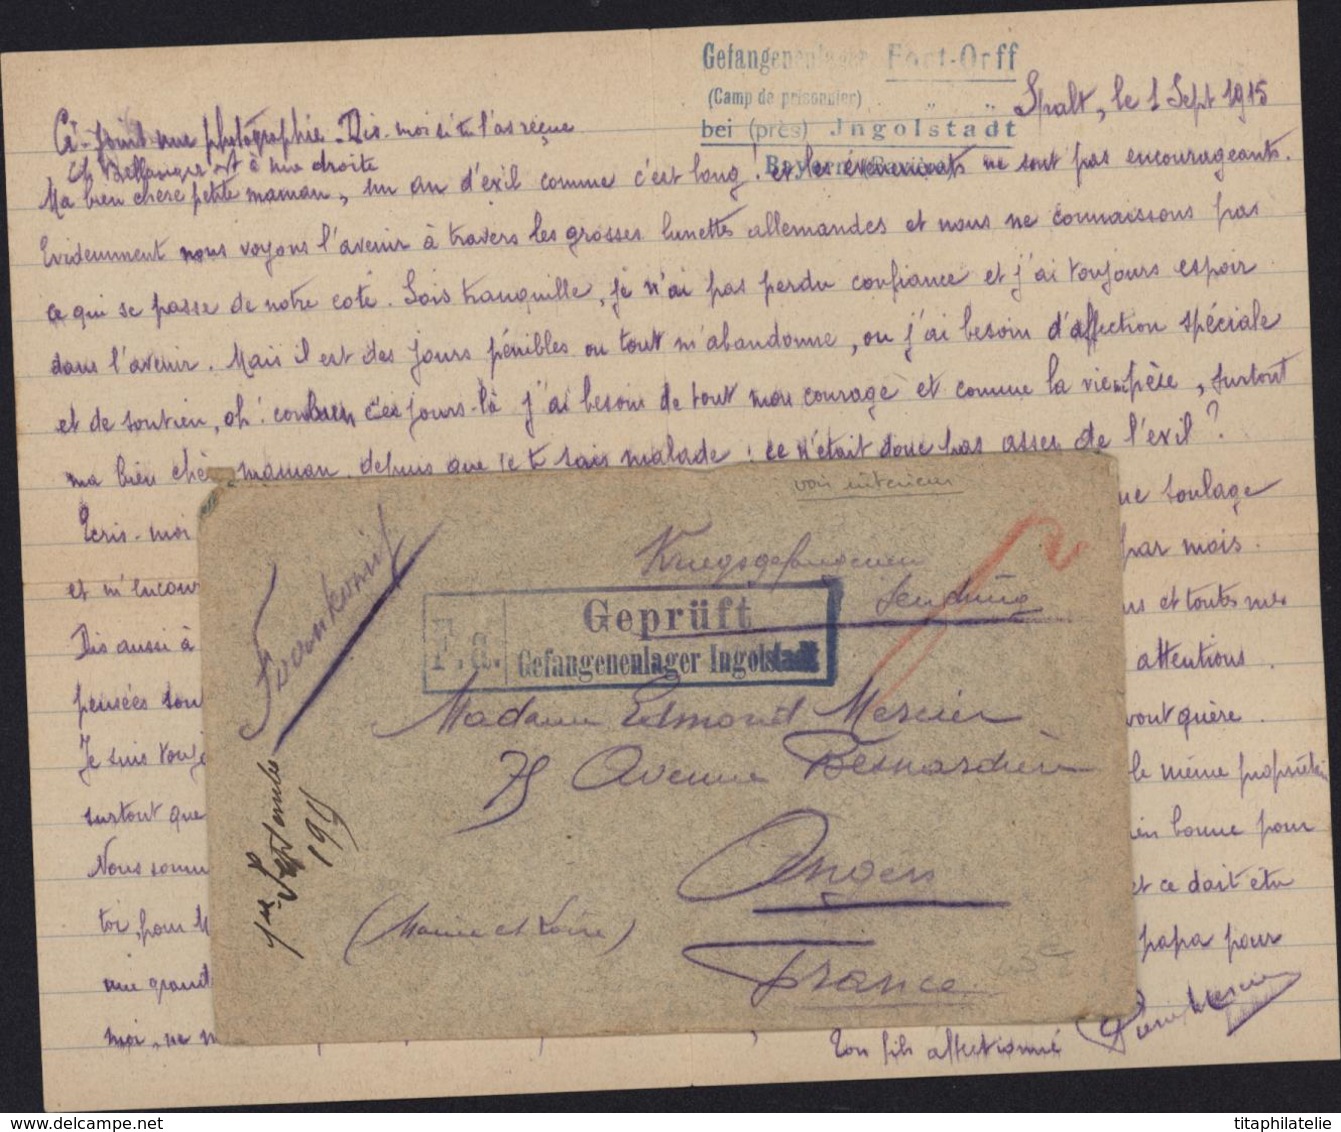 Gefangenenlager Fort-Orff
(Camp de prisonnier) " "
bei (près) Jngolstadt
Bayern (Bavière)
Spalt, le 1 Sept 1915
Ci-joint une photographie. Dis-moi si tu l'as reçue
est à ma droite
Ma bien chère petite maman, un an d'exil comme c'est long! et les évènements ne sont pas encourageants.
Evidemment nous voyons l'avenir à travers les grosses lunettes allemandes et nous ne connaissons pas
ce qui se passe de notre coté. Sois tranquille, je n'ai pas perdu confiance et j'ai toujours espoir
dans l'avenir. Mais il est des jours pénibles ou tout m'abandonne, ou j'ai besoin d'affection spéciale
et de soutien, oh! combien ces jours-là j'ai besoin de tout mon courage et comme la vie me pèse, surtout
ma bien chère maman, depuis que je te sais malade; ce n'était donc pas assez de l'exil?
Ecris-moi
ue soulage
et m'encour
par mois.
Dis aussi à
us et toutes mes
pensées sont
attentions.
Je suis touj
vont guère.
surtout que
le même propriétaire
Nous somm
ien bonne pour
toi, pour M
et ce doit être
une grand
papa pour
moi, ne m
Ton fils affectionné Pierre Mercier
voir intérieur
Kriegsgefangenen
Sendung
F.a. Geprüft
Gefangenenlager Ingolstadt
Madame Edmond Mercier
75 Avenue Besnardière
Angers
(Maine et Loire)
France
1er Septembre
1915
titaphilatelie
delcampe.net